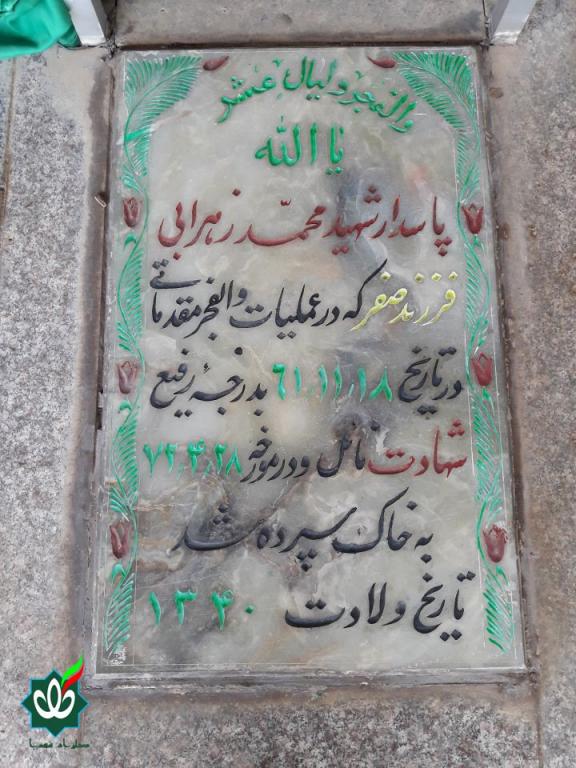 والفجر و لیال عشر
یا الله
پاسدار شهید محمّد زهرابی
فرزند صفر که در عملیات والفجر مقدماتی
در تاریخ ۶۱،۱۱،۱۸ بدرجهٔ رفیع
شهادت نائل و در مورخه ۷۲،۴،۲۸
به خاک سپرده شد
تاریخ ولادت ۱۳۴۰